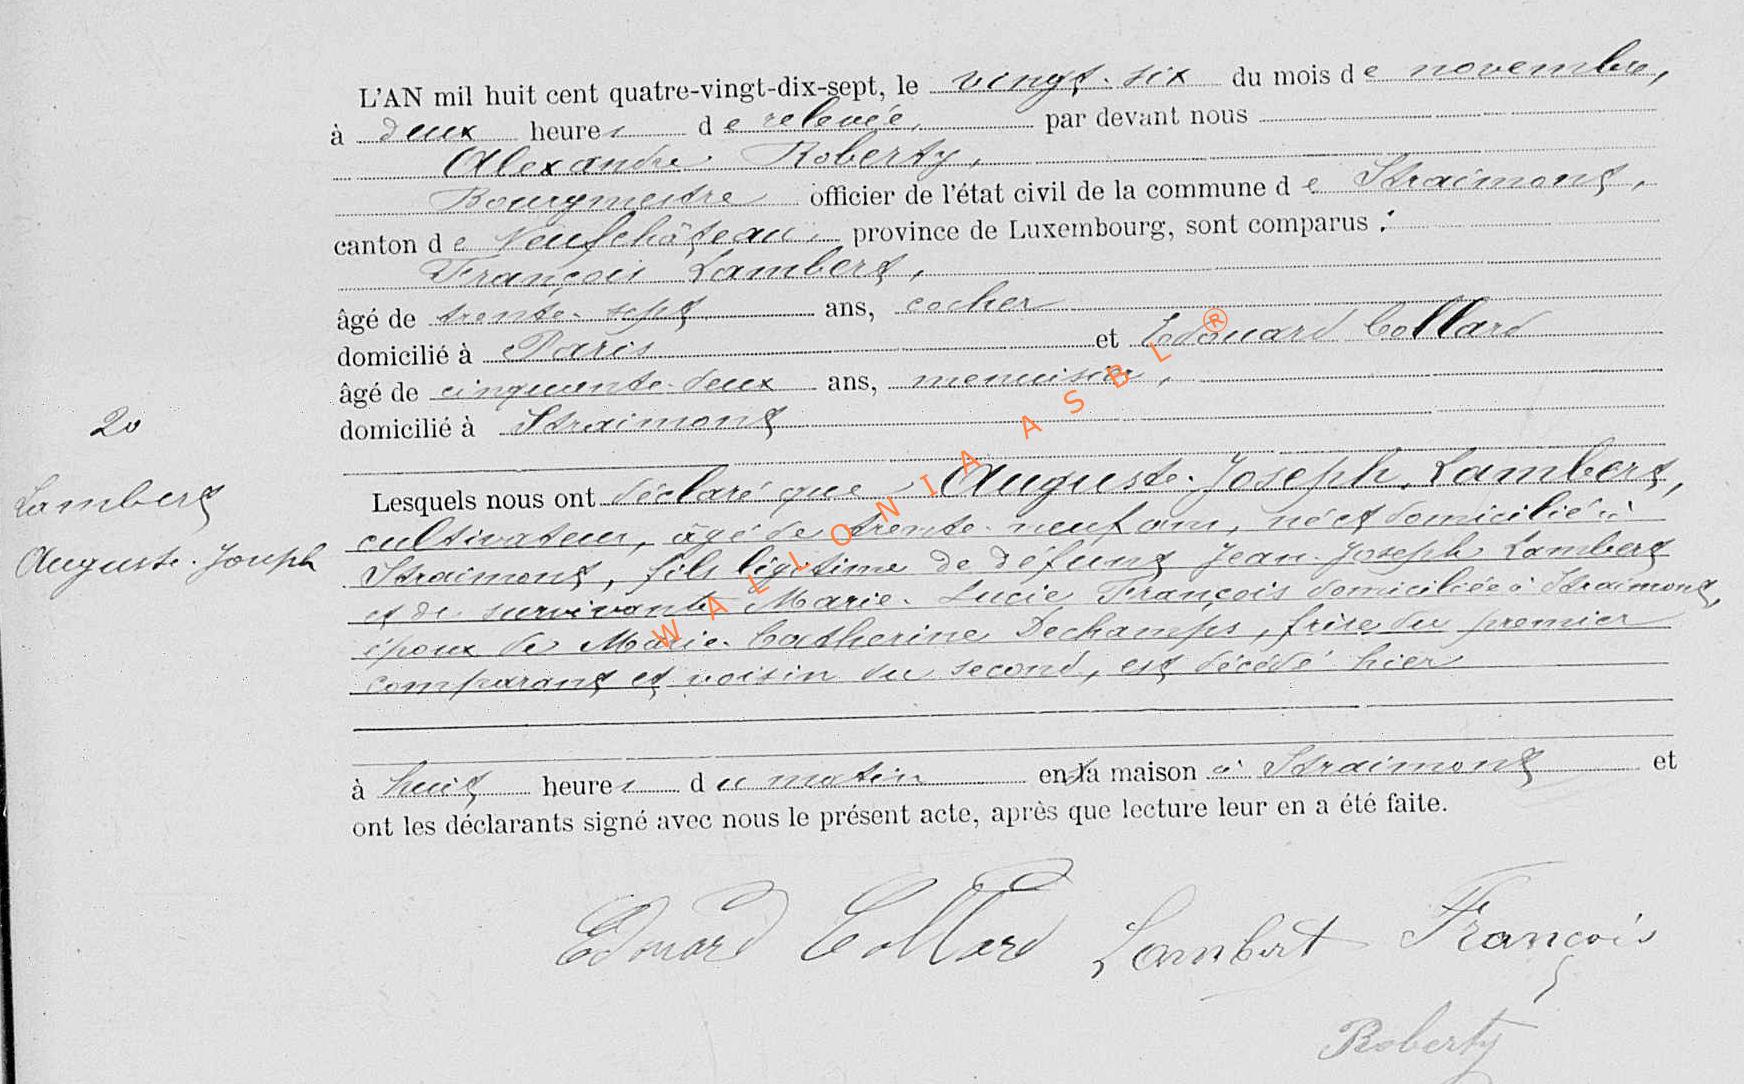 L'AN mil huit cent quatre-vingt-dix-sept, le vingt-six du mois de novembre,
à deux heures de relevée, par devant nous
Alexandre Roberty,
Bourgmestre officier de l'état civil de la commune de Straimont,
canton de Neufchâteau, province de Luxembourg, sont comparus :
François Lambert,
âgé de trente-sept ans, cocher
domicilié à Paris et Edouard Collard
âgé de cinquante-deux ans, menuisier,
domicilié à Straimont
20
Lambert
Auguste-Joseph
Lesquels nous ont déclaré que Auguste-Joseph Lambert,
cultivateur, âgé de trente-neuf ans, né et domicilié à
Straimont, fils légitime de défunt Jean-Joseph Lambert
et de survivante Marie-Lucie François domiciliée à Straimont,
époux de Marie-Catherine Dechamps, frère du premier
comparant et voisin du second, est décédé hier
à huit heures du matin en sa maison à Straimont et
ont les déclarants signé avec nous le présent acte, après que lecture leur en a été faite.
Edouard Collard Lambert François
Roberty
WALLONIA ASBL ®